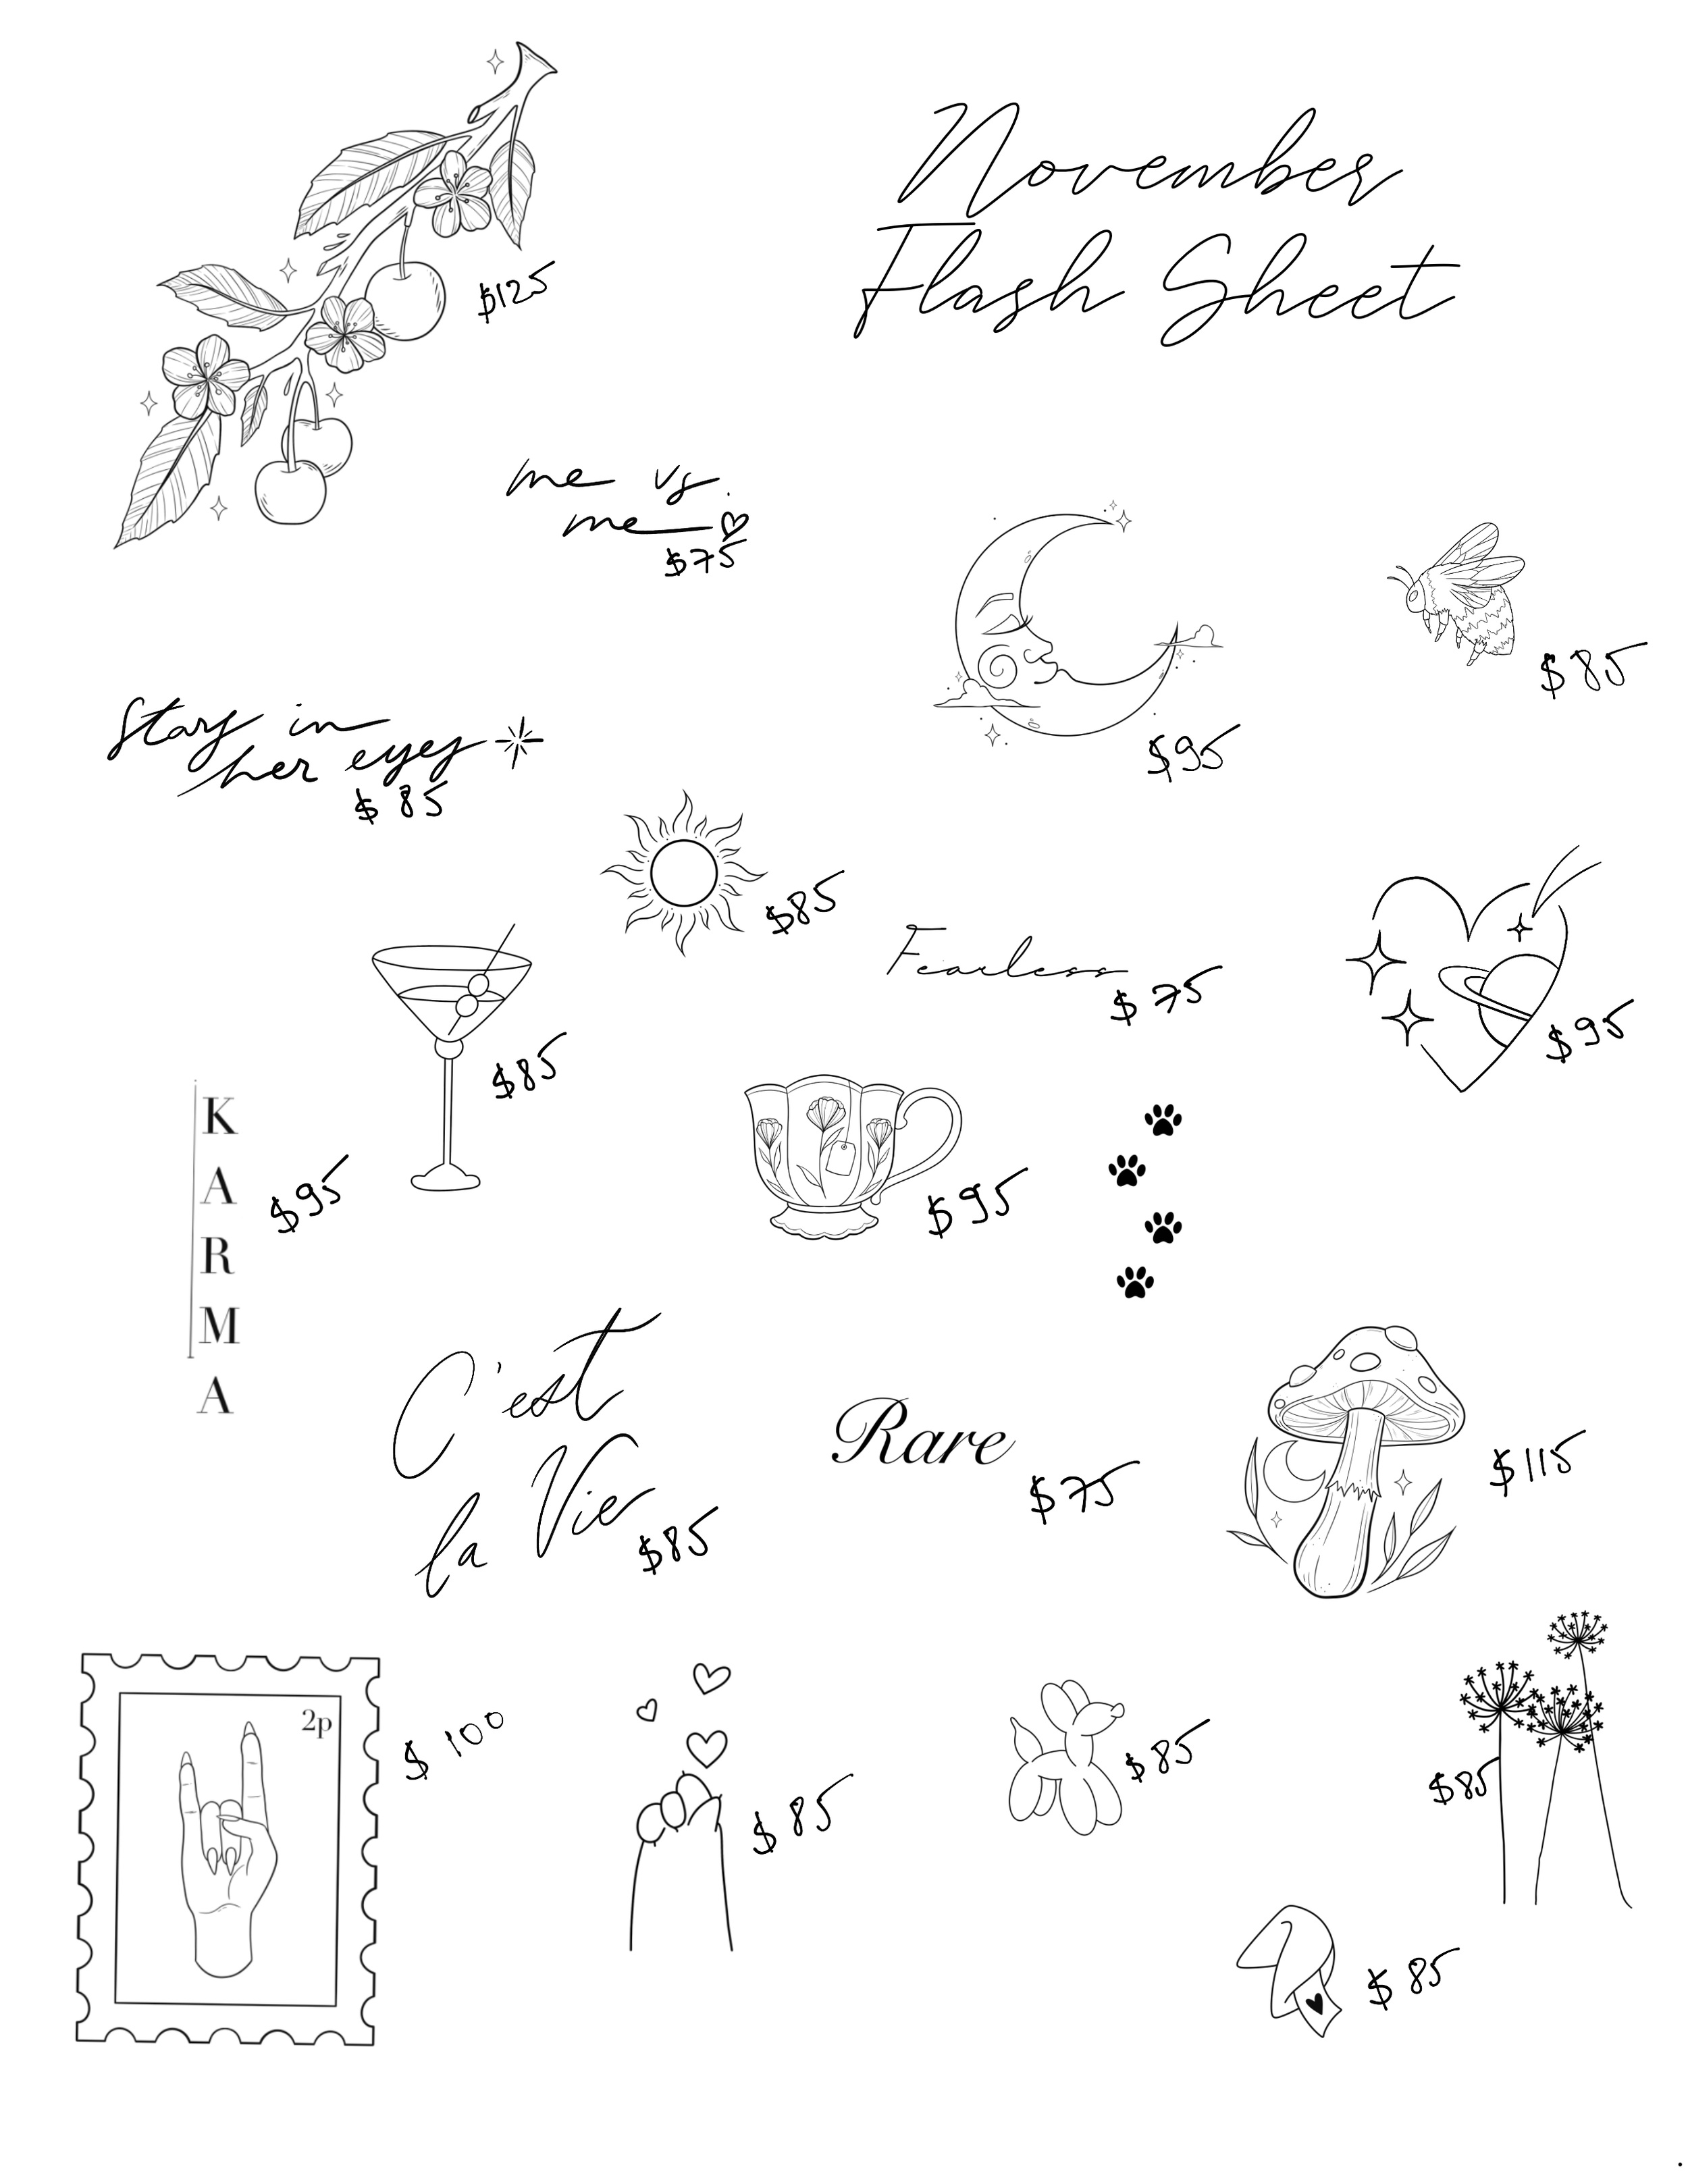 November
Flash Sheet
$125
me vs.
me
$75
$95
$85
Stay in
her eyes
$85
$85
Fearless
$75
$95
$85
K
A
R
M
A
$95
$95
C'est
la Vie
$85
Rare
$75
$115
2p
$100
$85
$85
$85
$85